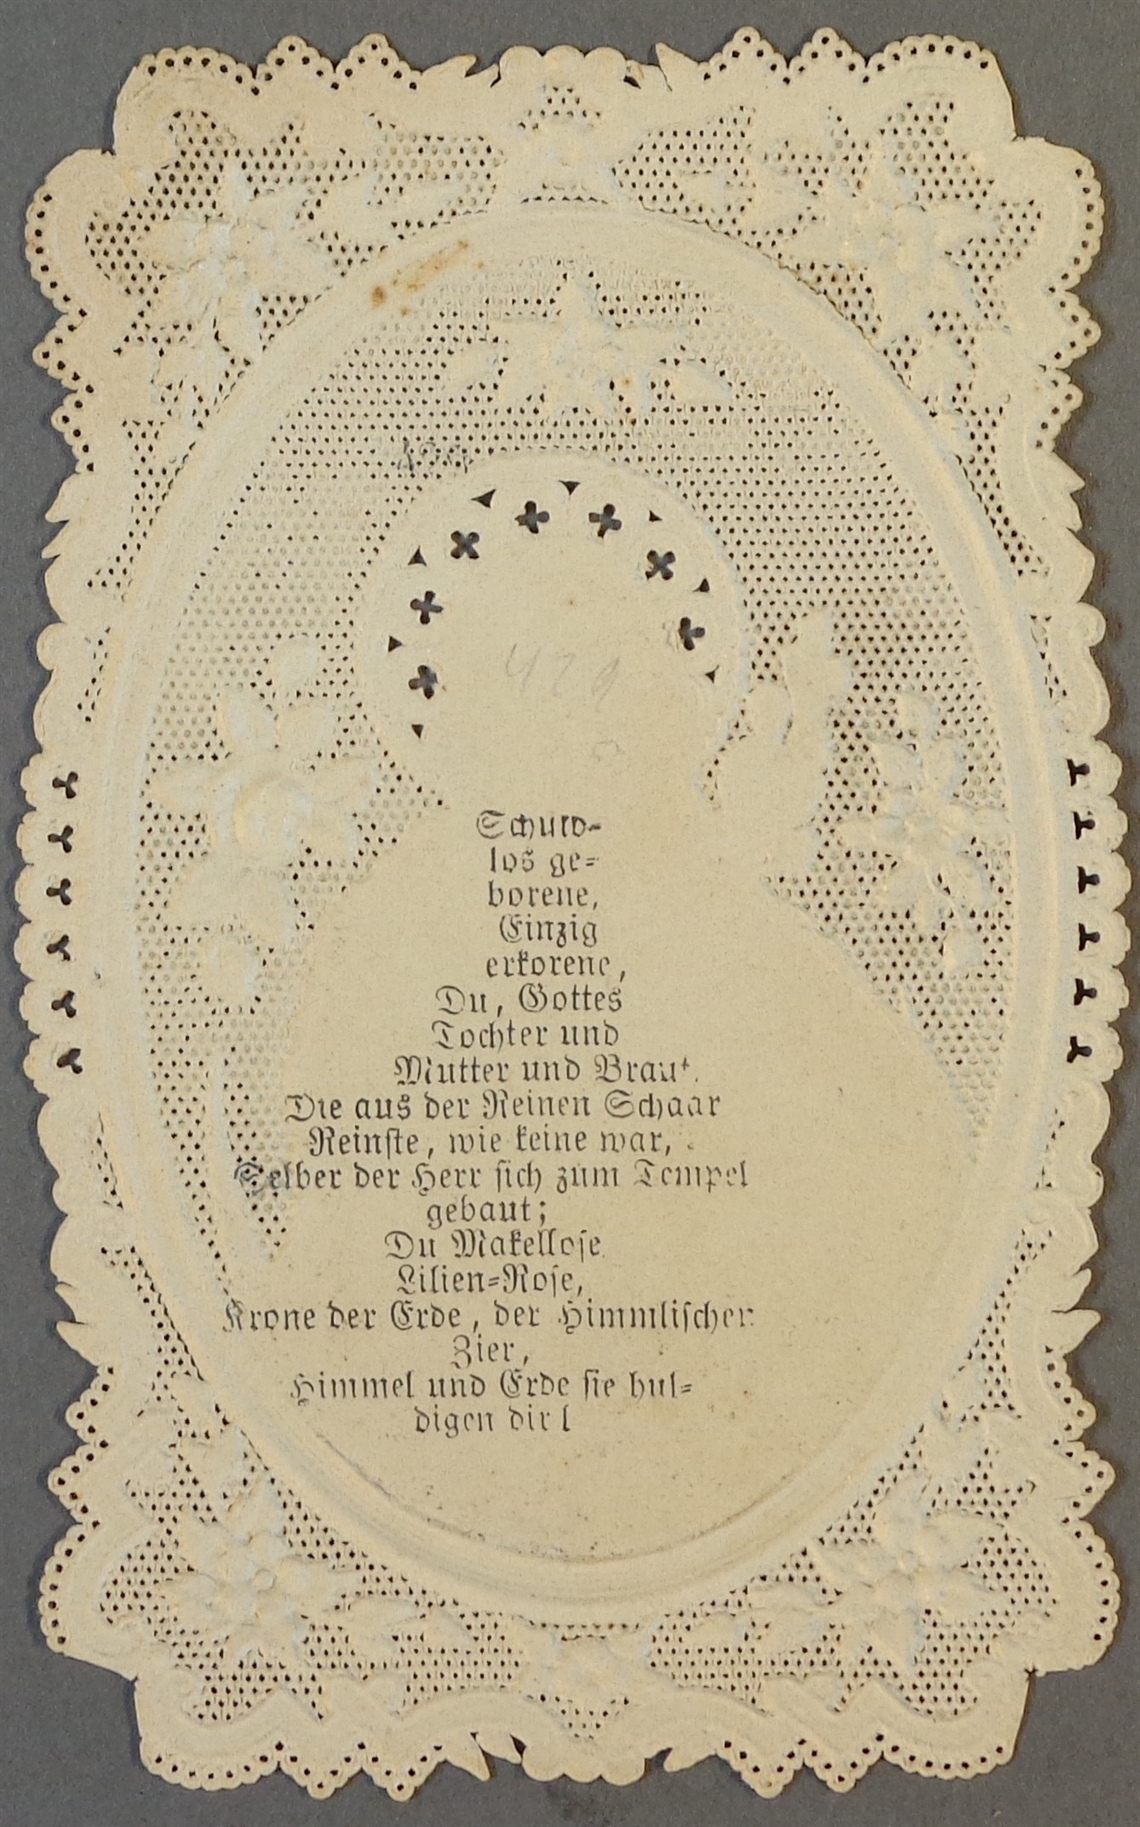 Schuld-
los ge-
borene,
Einzig
erkorene,
Du, Gottes
Tochter und
Mutter und Braut.
Die aus der Reinen Schaar
Reinste, wie keine war,
Selber der Herr sich zum Tempel
gebaut;
Du Makellose
Lilien-Rose,
Krone der Erde, der Himmlischen
Zier,
Himmel und Erde sie hul-
digen dir!